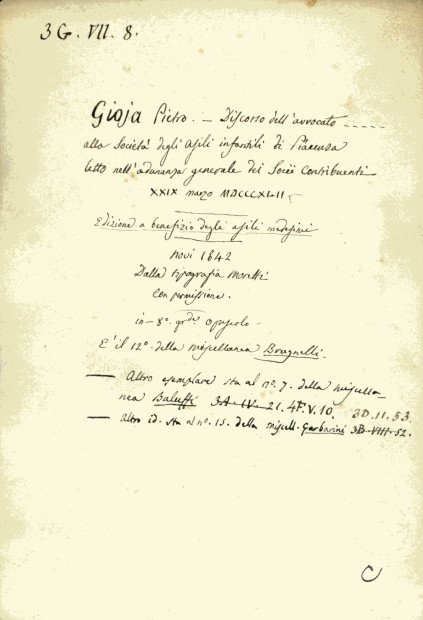 3 G. VII. 8.
Gioja Pietro. — Discorso dell'avvocato -----
alla Società degli asili infantili di Piacenza
letto nell'adunanza generale dei Socii Contribuenti
XXIX marzo MDCCCXLII
Edizione a benefizio degli asili medesimi
Novi 1842
Dalla tipografia Moretti
Con permissione.
in-8º grde opuscolo -
È il 12º della miscellanea Bragnelli.
— Altro esemplare sta al nº. 7. della miscella-
nea Baluffi 3A. IV. 21. 4F. V. 10. 3D. 11. 53.
— Altro id. sta al nº. 15. della miscell. Garbarini 3B. VIII. 52.
C